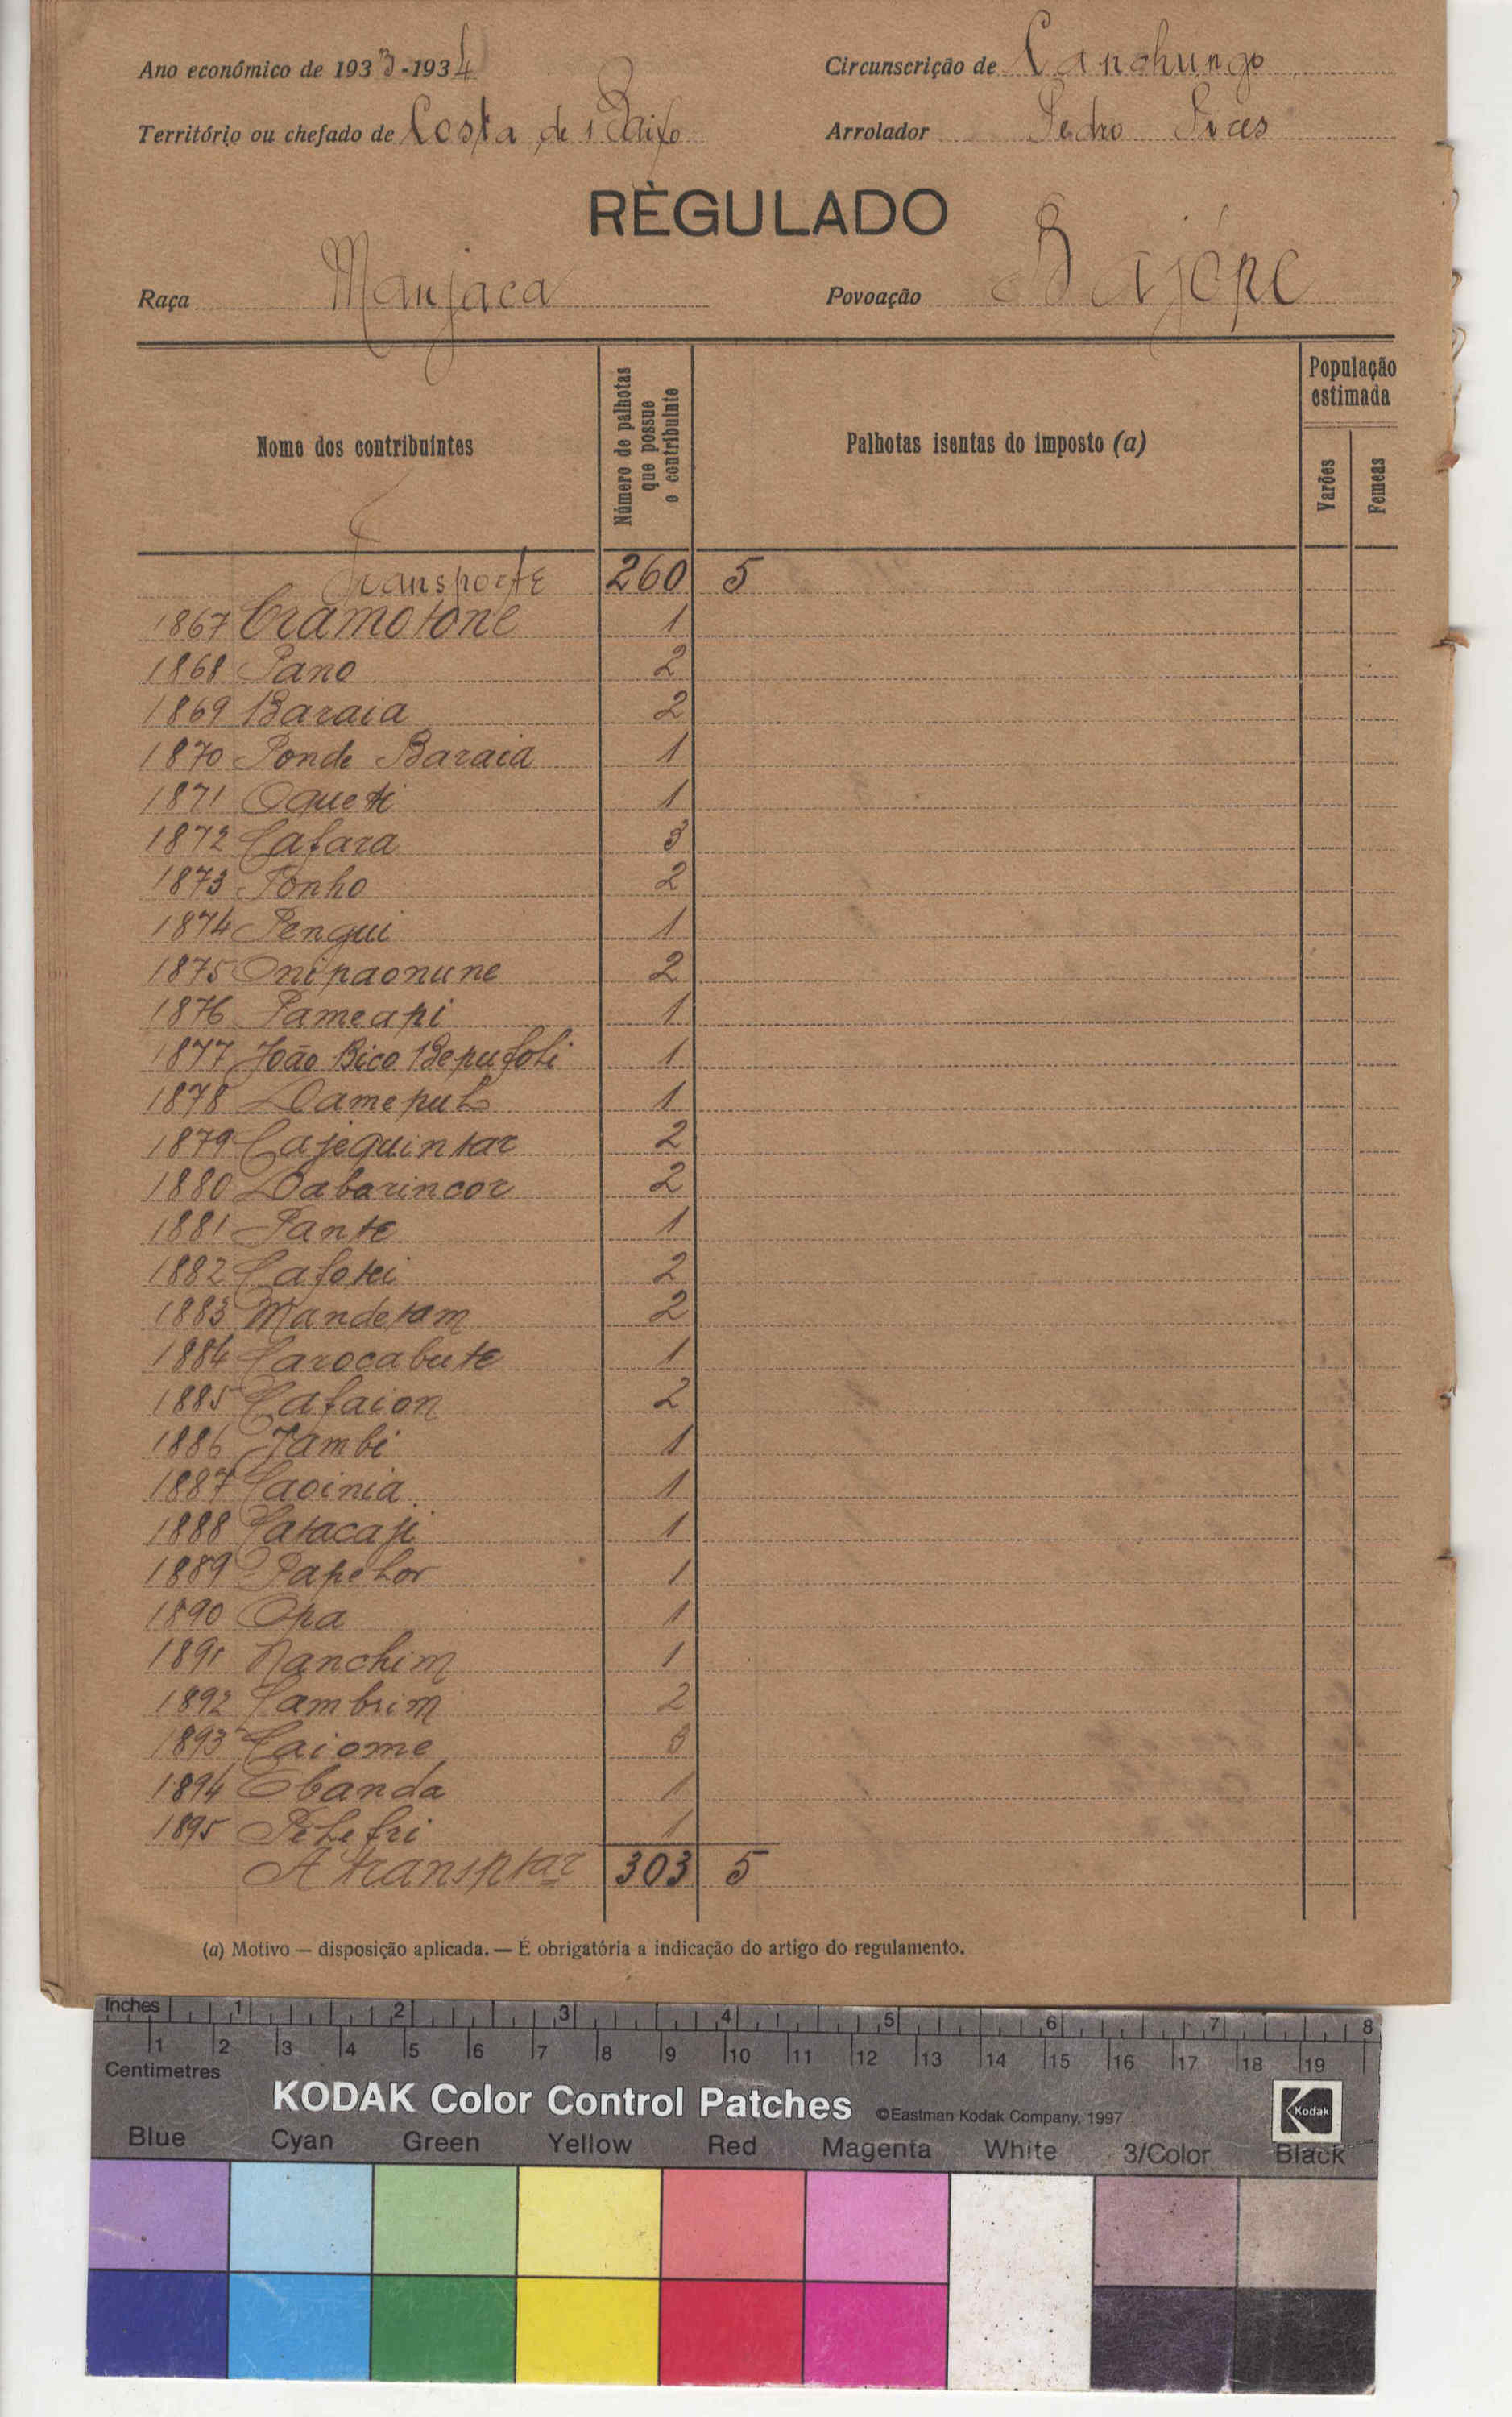 Ano económico de 1933-1934 Circunscrição de Canchungo
Território ou chefado de Costa de Baixo Arrolador Pedro Pires
RÈGULADO
Raça Manjaca Povoação Bajópe
Nome dos contribuintes
Número de palhotas que possue o contribuinte
Palhotas isentas do imposto (a)
População estimada
Varões
Femeas
Transporte 260 5
1867 Cramotone 1
1868 Pano 2
1869 Baraia 2
1870 Ponde Baraia 1
1871 Oqueti 1
1872 Cafara 3
1873 Ponho 2
1874 Pengui 1
1875 Onipaonune 2
1876 Pameapi 1
1877 João Bico Bepufoli 1
1878 Damepul 1
1879 Cajequintar 2
1880 Dabarincor 2
1881 Pante 1
1882 Cafotei 2
1883 Mandetam 2
1884 Carocabute 1
1885 Cafaion 2
1886 Jambi 1
1887 Caoinia 1
1888 Catacaji 1
1889 Papelor 1
1890 Opa 1
1891 Nanchim 1
1892 Cambrim 2
1893 Caiome 3
1894 Obanda 1
1895 Pelefri 1
A transptar 303 5
(a) Motivo — disposição aplicada. — É obrigatória a indicação do artigo do regulamento.
Inches 1 2 3 4 5 6 7 8
1 2 3 4 5 6 7 8 9 10 11 12 13 14 15 16 17 18 19
Centimetres
KODAK Color Control Patches ©Eastman Kodak Company, 1997 Kodak
Blue Cyan Green Yellow Red Magenta White 3/Color Black